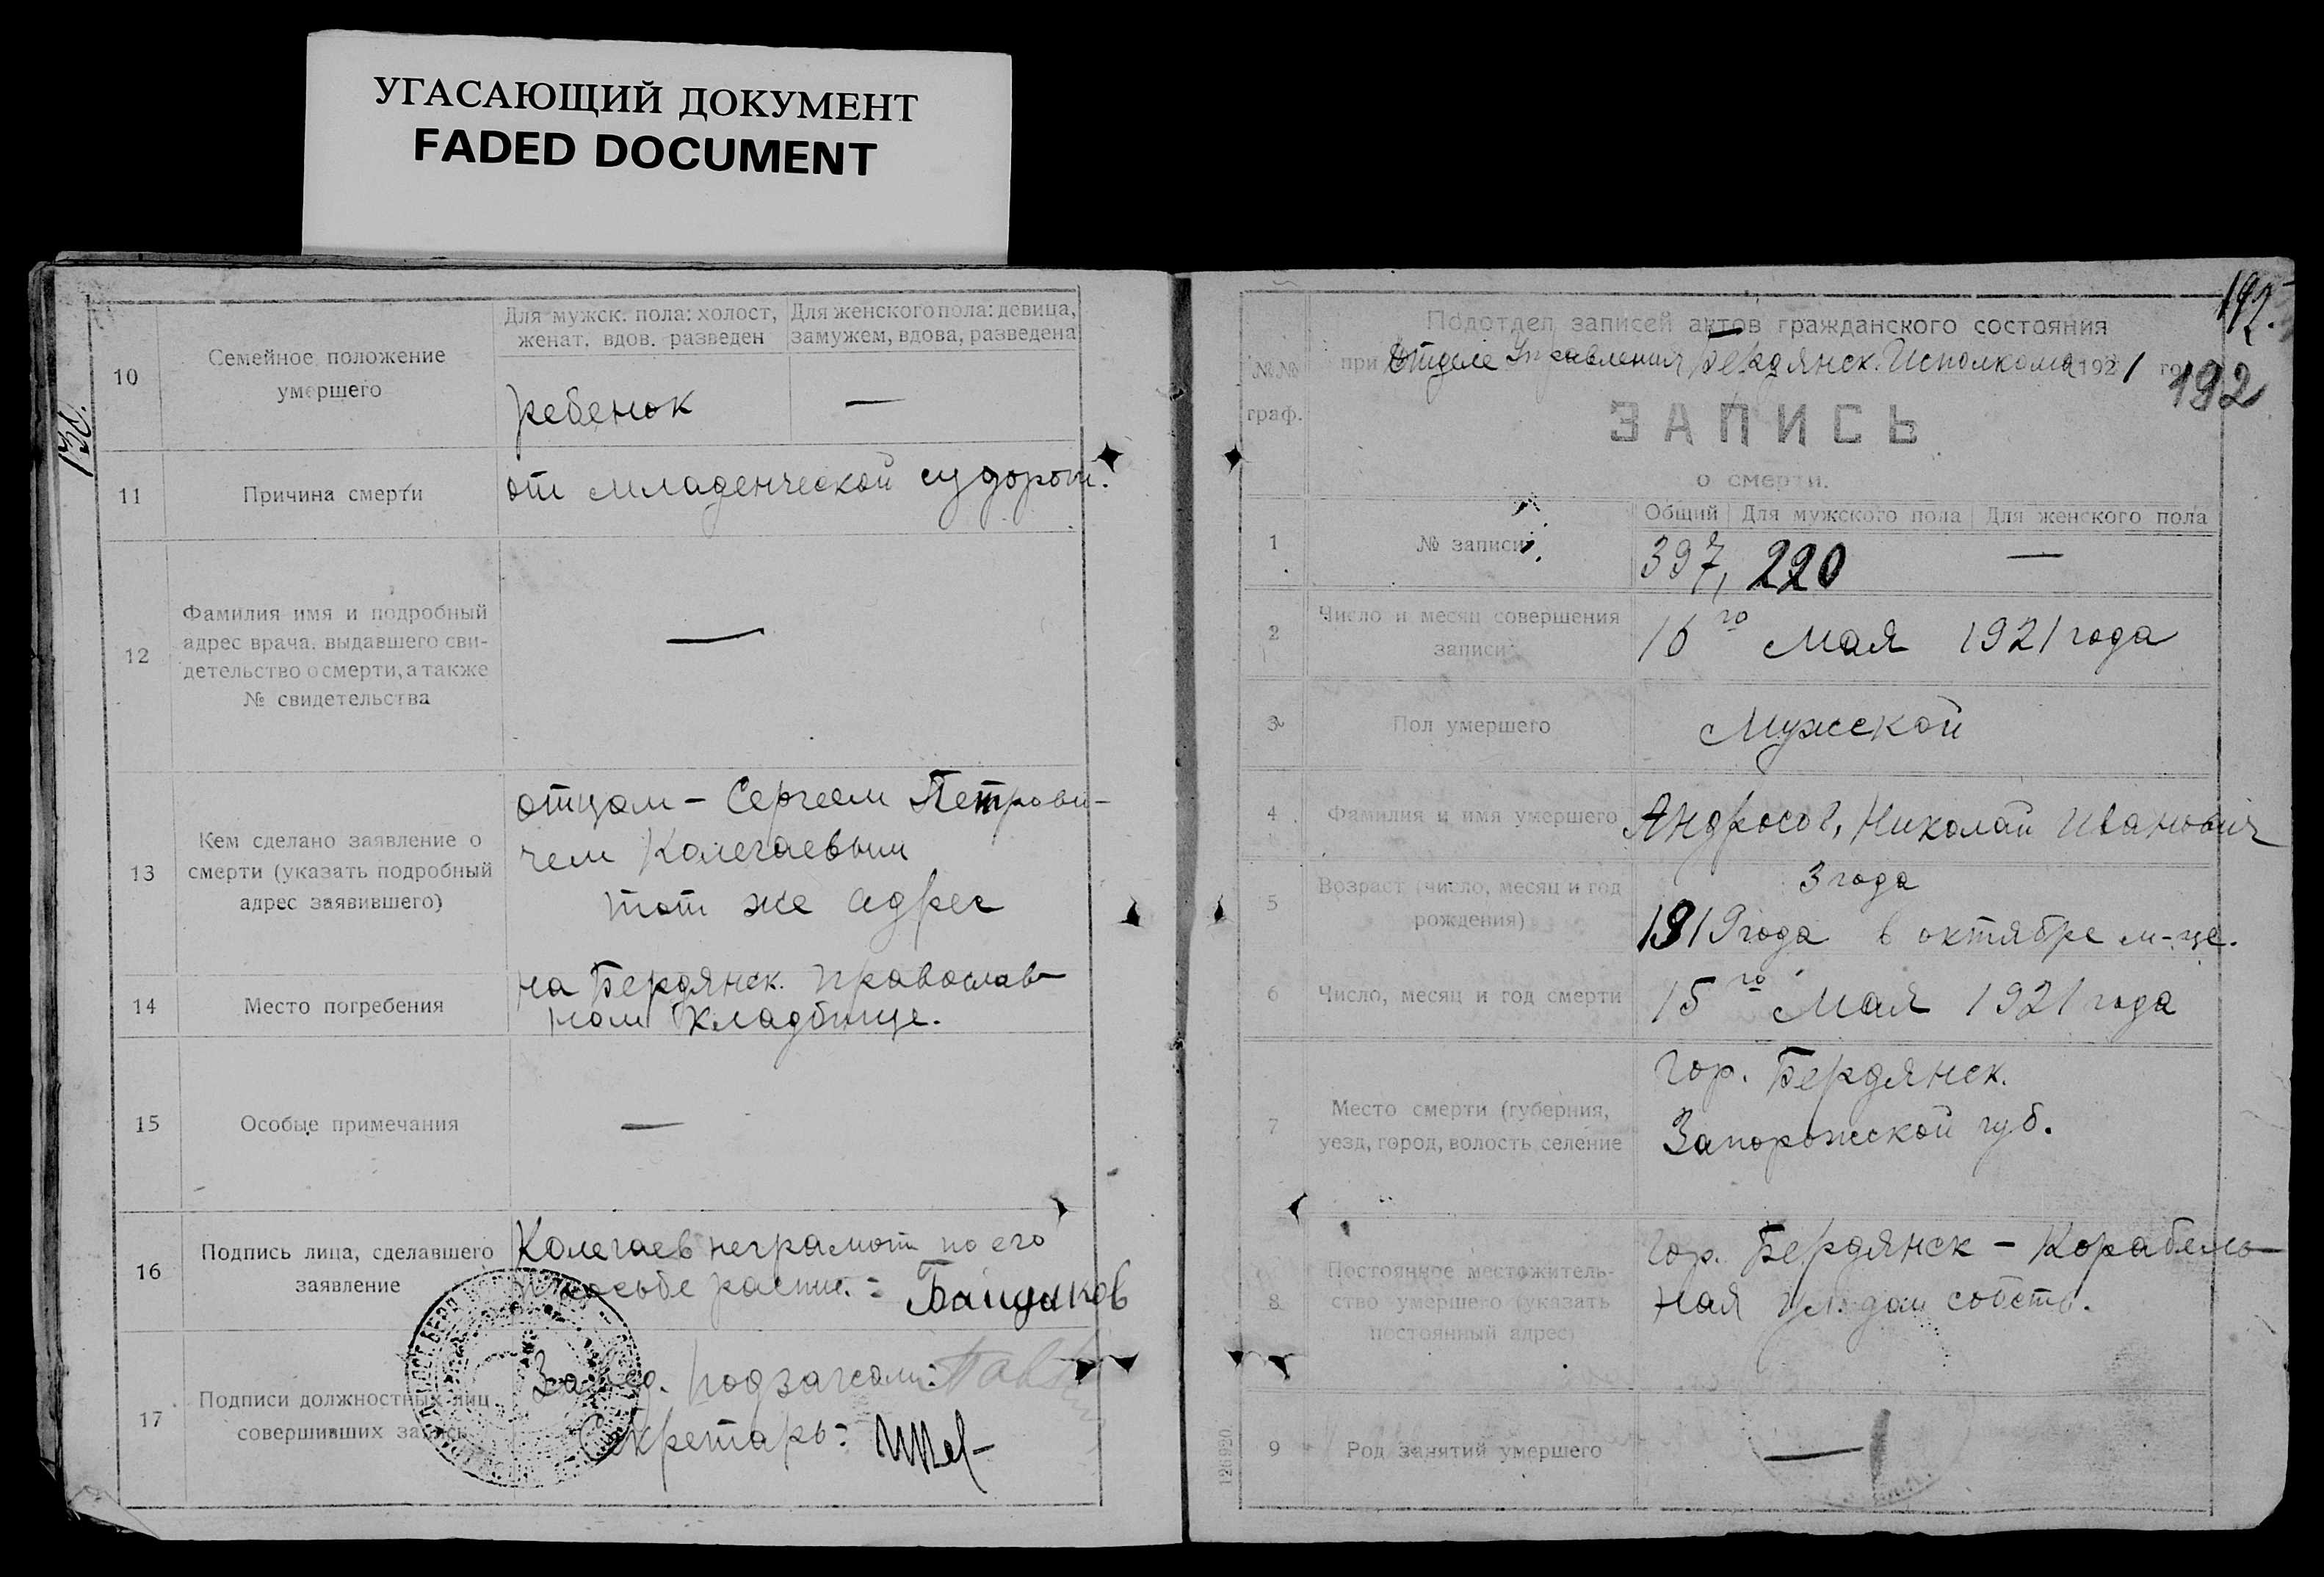 УГАСАЮЩИЙ ДОКУМЕНТ
FADED DOCUMENT
10
Семейное положение
умершего
Для мужск. пола: холост,
женат, вдов. разведен
Для женского пола: девица,
замужем, вдова, разведена
ребенок
—
11
Причина смерти
от младенческой судорог.
12
Фамилия имя и подробный
адрес врача, выдавшего сви-
детельство о смерти, а также
№ свидетельства
—
13
Кем сделано заявление о
смерти (указать подробный
адрес заявившего)
отцом – Сергеем Петрови-
чем Колегаевым
тот же адрес
14
Место погребения
на Бердянск. православ-
ном кладбище.
15
Особые примечания
—
16
Подпись лица, сделавшего
заявление
Колегаев неграмот по его
просьбе распис. :
17
Подписи должностных лиц
совершивших запись
Завед. подзагсом:
Секретарь:
192.
192
Подотдел записей актов гражданского состояния
№№
граф.
при Отделе Управления Бердянск. Исполкома 1921 го
ЗАПИСЬ
о смерти.
1
№ записи
Общий
Для мужского пола
Для женского пола
397, 220 —
2
Число и месяц совершения
записи
16го Мая 1921 года
3
Пол умершего
Мужской
4
Фамилия и имя умершего
Андросов, Николай Иванович
5
Возраст (число, месяц и год
рождения)
3 года
1919 года в октябре м-це.
6
Число, месяц и год смерти
15го Мая 1921 года
7
Место смерти (губерния,
уезд, город, волость селение
Гор. Бердянск.
Запорожской губ.
8
Постоянное местожитель-
ство умершего (указать
постоянный адрес)
Гор. Бердянск – Корабель-
ная ул. дом собств.
9
Род занятий умершего
—
126920